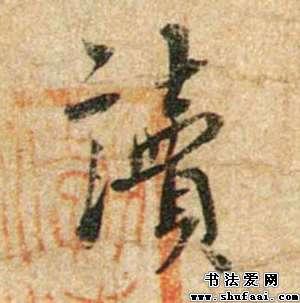 讀
书法爱网
www.shufaai.com